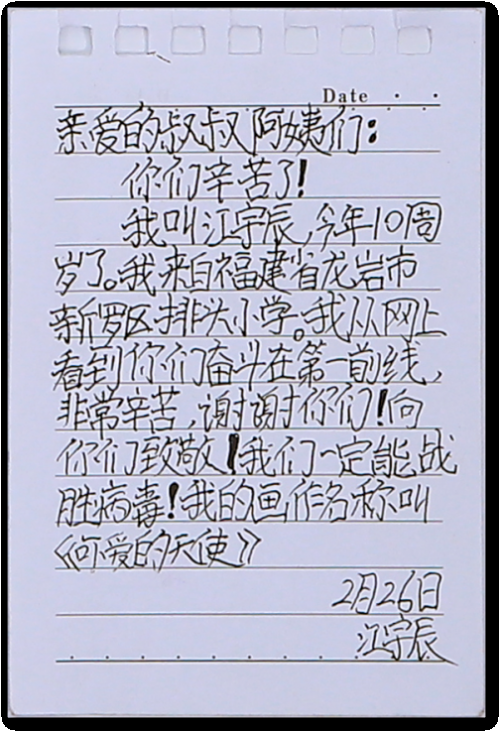 Date . .
亲爱的叔叔阿姨们：
你们辛苦了！
我叫江宇辰，今年10周
岁了。我来自福建省龙岩市
新罗区排头小学。我从网上
看到你们奋斗在第一前线，
非常辛苦，谢谢你们！向
你们致敬！我们一定能战
胜病毒！我的画作名称叫
《可爱的天使》
2月26日
江宇辰